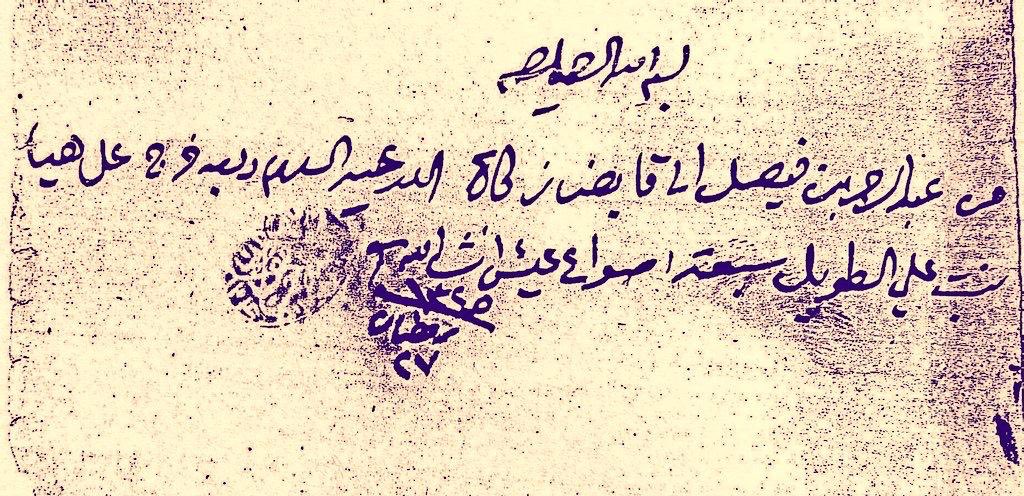 بسم الله الرحمن الرحيم
من عبد الرحمن بن فيصل الى قابض زكاة الدرعيه السلام وبعد فرج على هيا
بنت علي الطويل سبعة اصواع عيش انشا الله
١٣٢٣
رمضان
٢٧